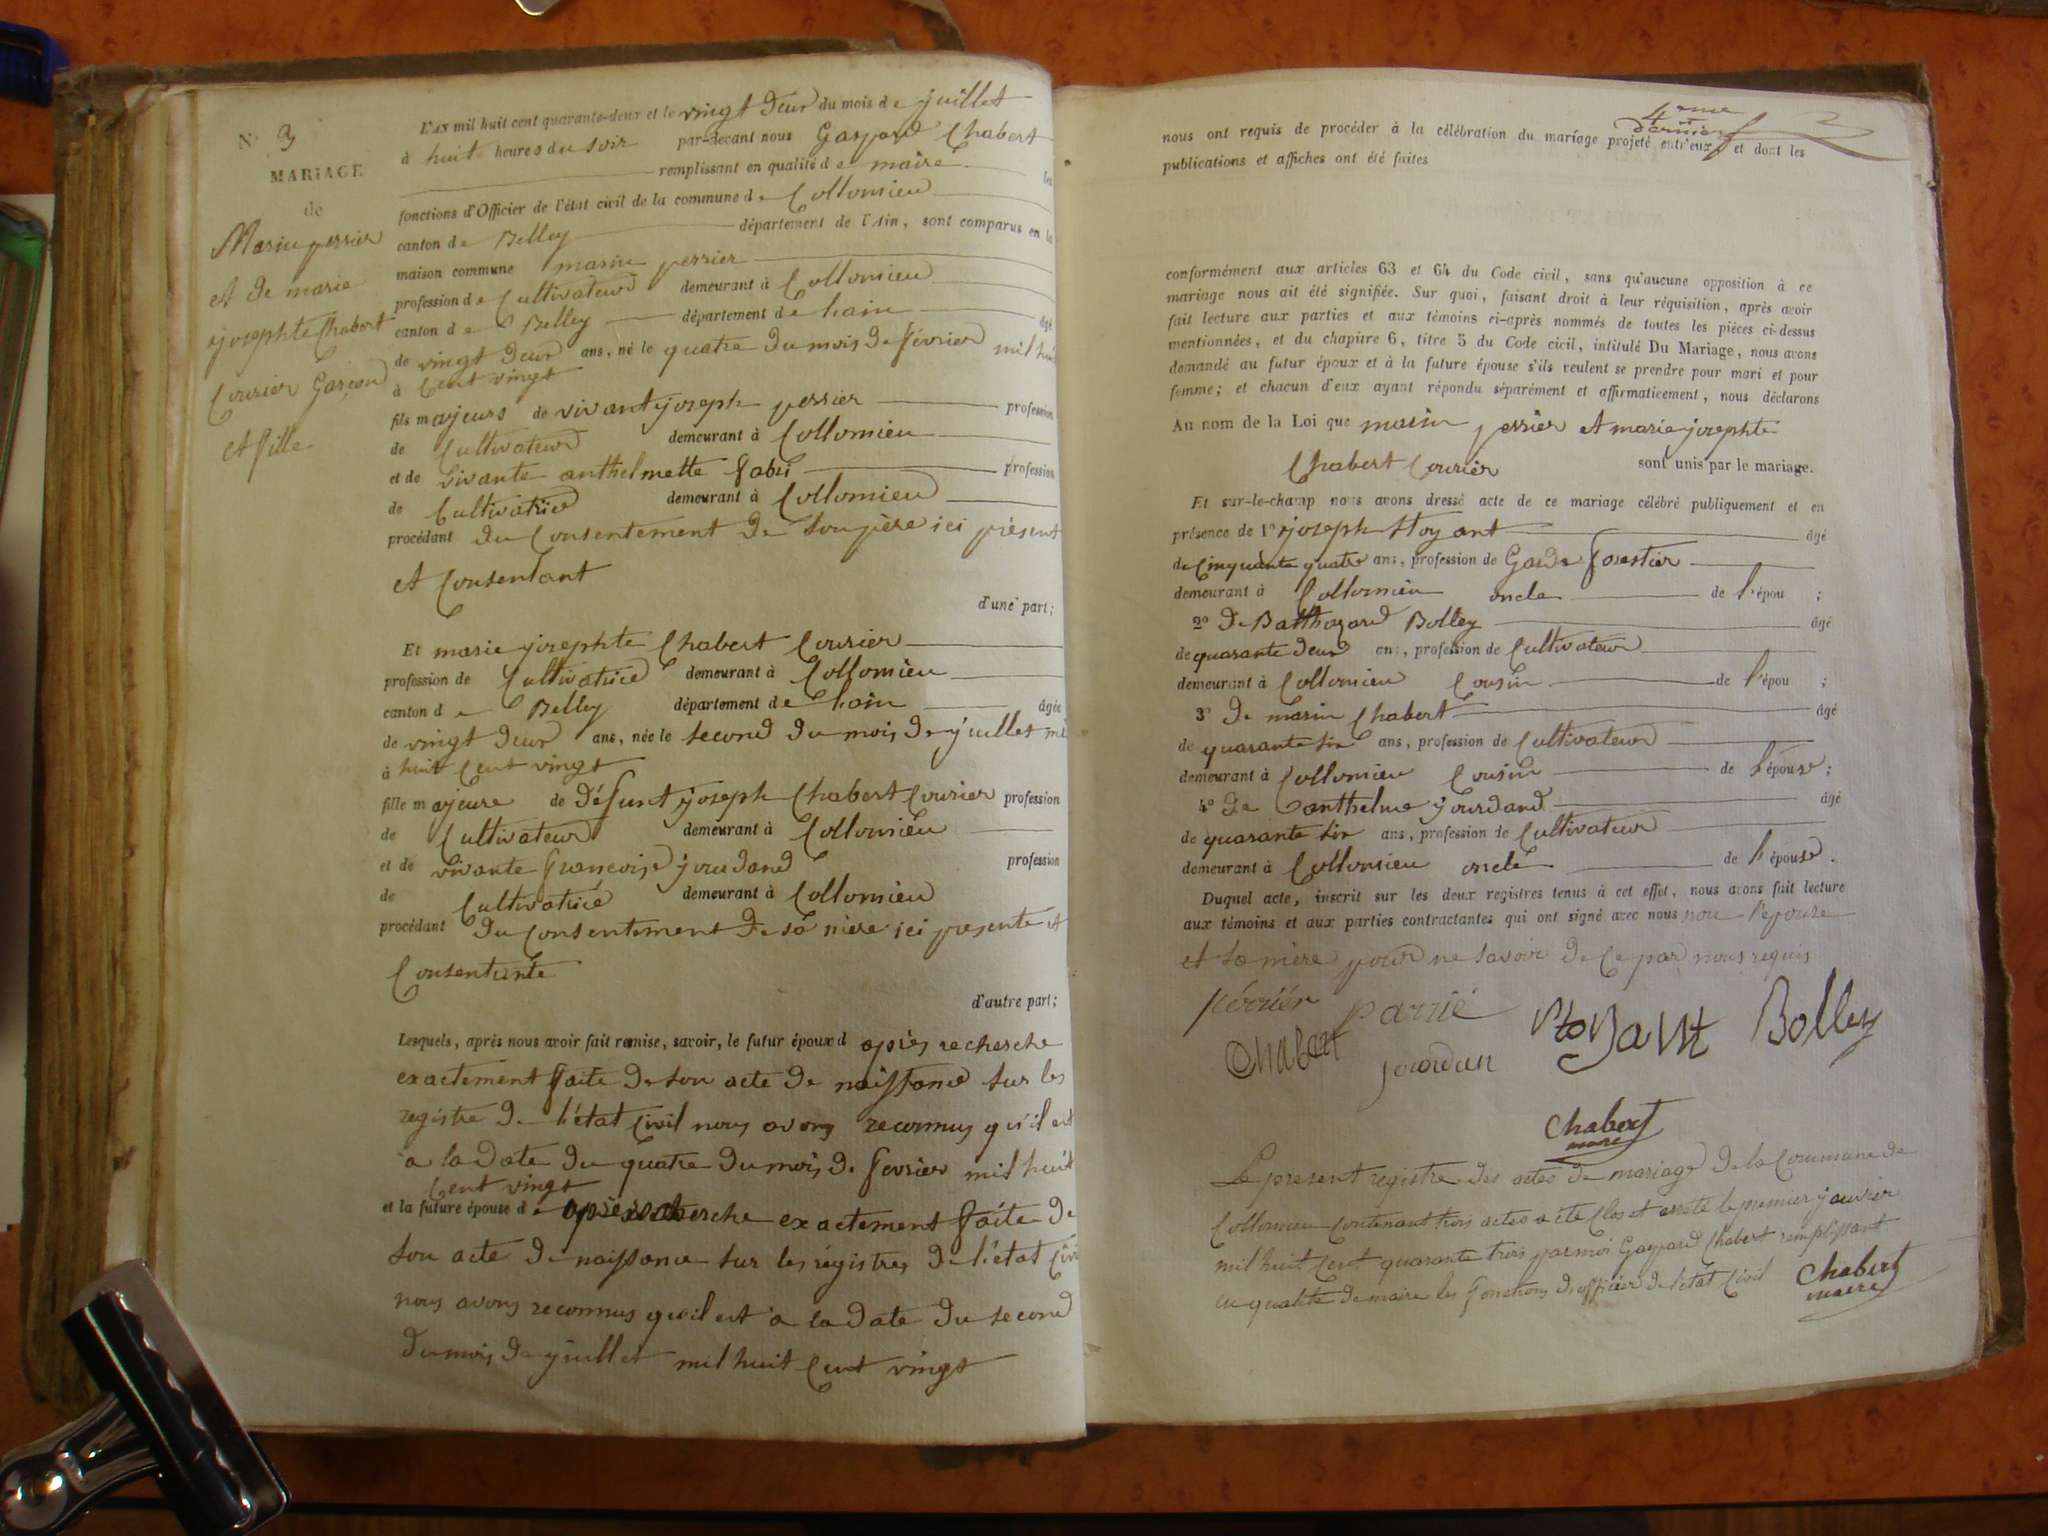 N° 3
MARIAGE
de
Marin perrier
et de marie
josephte Chabert
Courier Garçon
et fille
L'AN mil huit cent quarante-deux et le vingt deux du mois de juillet
à huit heures du soir par-devant nous Gaspard Chabert
remplissant en qualité de maire les
fonctions d'Officier de l'état civil de la commune de Collomieu
canton de Belley département de l'Ain, sont comparus en la
maison commune marin perrier
profession de Cultivateur demeurant à Collomieu
canton de Belley département de lain âgé
de vingt deux ans, né le quatre du mois de février mil huit
à Cent vingt
fils majeur de vivant joseph perrier profession
de Cultivateur demeurant à Collomieu
et de vivante anthelmette fabri profession
de Cultivatrice demeurant à Collomieu
procédant du Consentement de Son père ici présent
et Consentant
d'une part;
Et marie josephte Chabert Courier
profession de Cultivatrice demeurant à Collomieu
canton de Belley département de lain âgée
de vingt deux ans, née le second du mois de juillet mil
à huit Cent vingt
fille majeure de défunt joseph Chabert Courier profession
de Cultivateur demeurant à Collomieu
et de vivante françoise jourdand profession
de Cultivatrice demeurant à Collomieu
procédant du Consentement de sa mère ici presente et
Consentante
d'autre part;
Lesquels, après nous avoir fait remise, savoir, le futur époux d après recherche
exactement faite de Son acte de naissance Sur les
registre de l'état Civil nous avons reconnus qu'il est
a la date du quatre du mois de fevrier mil huit
Cent vingt
et la future épouse de après recherche exactement faite de
Son acte de naissance Sur les régistres de l'état Civil
nous avons reconnus qu'il est a la date du second
du mois de juillet mil huit Cent vingt
4eme
et dernier f
nous ont requis de procéder à la célébration du mariage projeté entr'eux, et dont les
publications et affiches ont été faites
conformément aux articles 63 et 64 du Code civil, sans qu'aucune opposition à ce
mariage nous ait été signifiée. Sur quoi, faisant droit à leur réquisition, après avoir
fait lecture aux parties et aux témoins ci-après nommés de toutes les pièces ci-dessus
mentionnées, et du chapitre 6, titre 5 du Code civil, intitulé Du Mariage, nous avons
demandé au futur époux et à la future épouse s'ils veulent se prendre pour mari et pour
femme; et chacun d'eux ayant répondu séparément et affirmativement, nous déclarons
Au nom de la Loi que marin perrier et marie josephte
Chabert Courier sont unis par le mariage.
Et sur-le-champ nous avons dressé acte de ce mariage célébré publiquement et en
présence de 1° joseph Noyant âgé
de Cinquante quatre ans, profession de Garde forestier
demeurant à Collomieu oncle de l'épou ;
2° De Balthazard Bolley âgé
de quarante deux ans, profession de Cultivateur
demeurant à Collomieu Cousin de l'épou ;
3° de marin Chabert âgé
de quarante six ans, profession de Cultivateur
demeurant à Collomieu Cousin de l'épouse;
4° de anthelme jourdand âgé
de quarante six ans, profession de Cultivateur
demeurant à Collomieu oncle de l'épouse.
Duquel acte, inscrit sur les deux registres tenus à cet effet, nous avons fait lecture
aux témoins et aux parties contractantes qui ont signé avec nous non l'epouse
et sa mère pour ne savoir de Ce par nous requis
perriér parrié Noyant Bolley
Chabert jourdan
Chabert
maire
Le present registre des actes de mariage de la Commune de
Collomieu Contenant trois actes a été Clos et arrêté le premier janvier
mil huit Cent quarante trois par moi Gaspard Chabert remplissant
en qualité de maire les fonctions d'officier de l'état Civil Chabert
maire